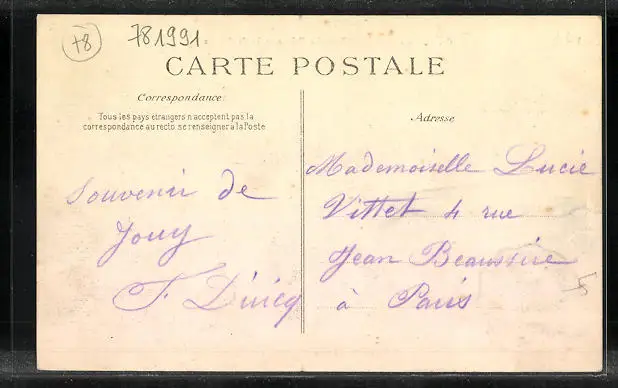 +8
781991
CARTE POSTALE
Correspondance:
Tous les pays étrangers n'acceptent pas la
correspondance au recto, se renseigner à la Poste
Souvenir de
Jouy
F.
Adresse
Mademoiselle Lucie
Vittet 4 rue
Jean Beausire
à Paris